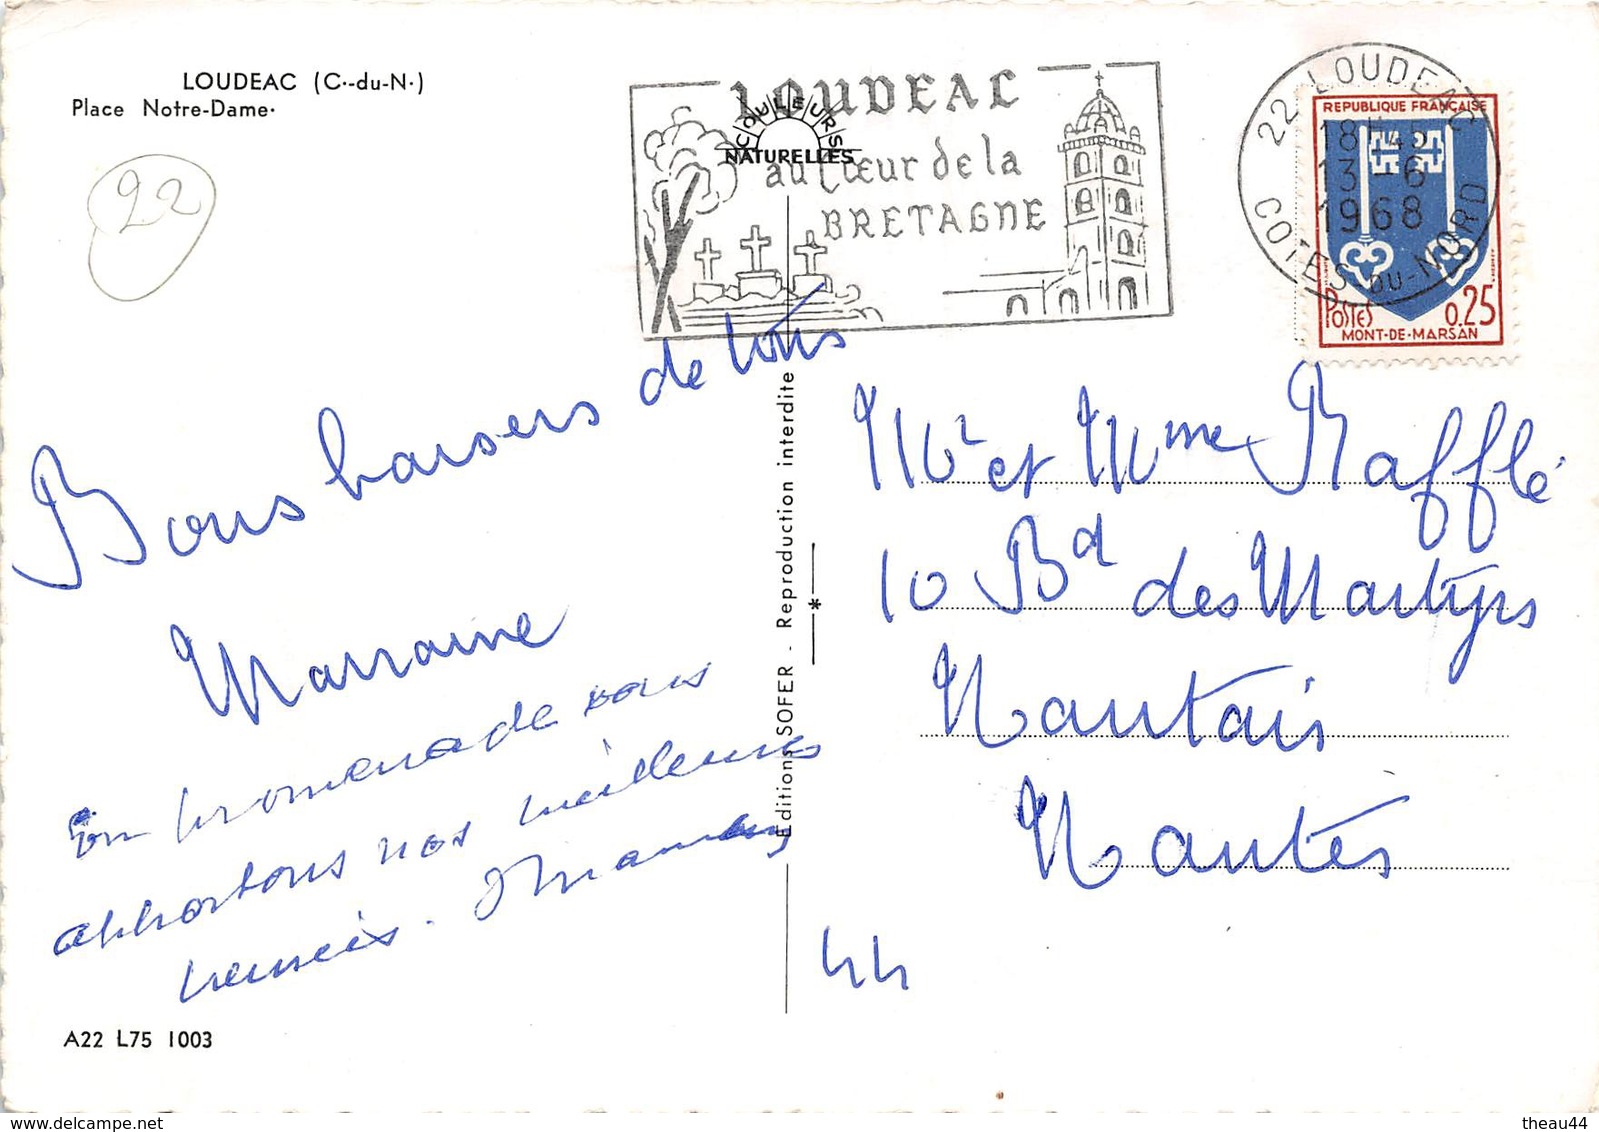 LOUDEAC (C.-du-N.)
Place Notre-Dame.
22
LOUDEAC
au Cœur de la
BRETAGNE
COULEURS
NATURELLES
22 LOUDEAC
18H45
13-6
1968
COTES-DU-NORD
REPUBLIQUE FRANÇAISE
POSTES
0,25
MONT-DE-MARSAN
Bons baisers de tous
Marraine
En promenade vous
apportons nos meilleures
pensées.
Editions SOFER - Reproduction interdite
*
Mr et Mme Rafflé
10 Bd des Martyrs
Nantais
Nantes
44
A22 L75 1003
delcampe.net
theau44